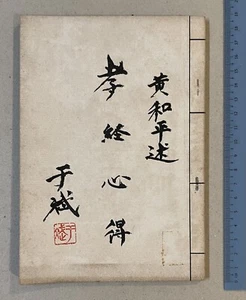 黄和平述
孝经心得
于斌